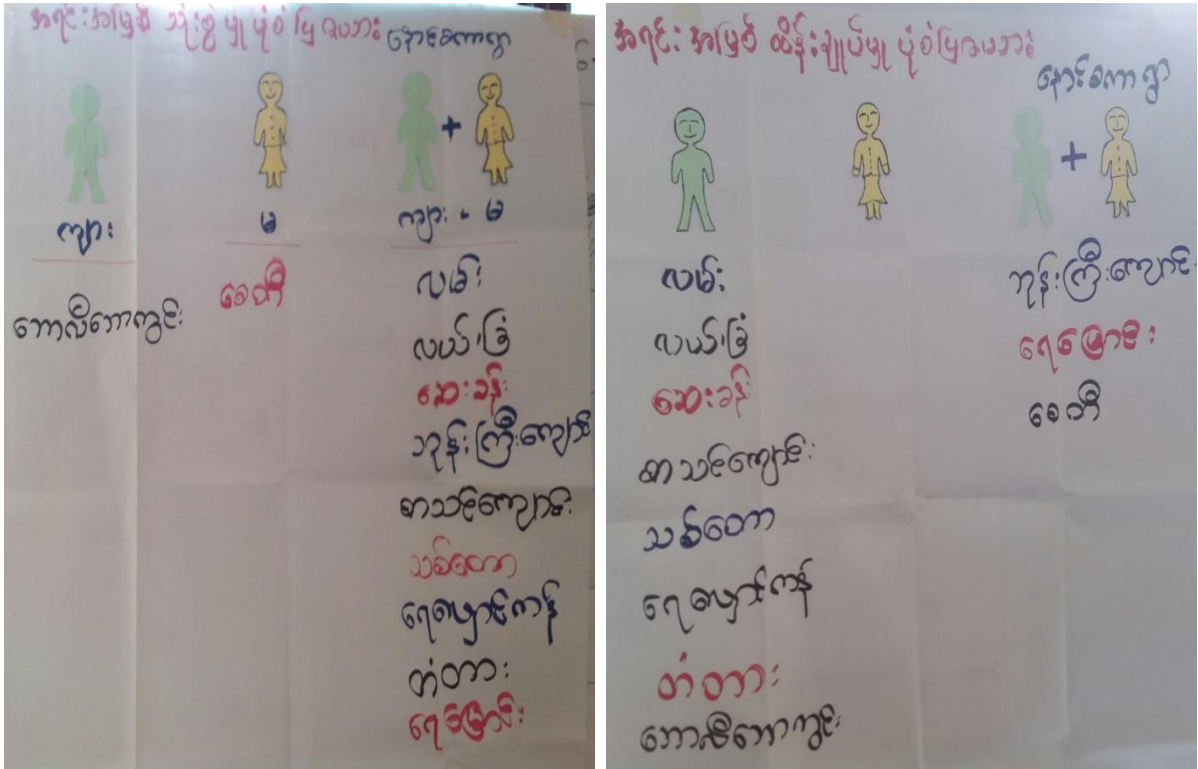 အရင်းအမြစ် သုံးစွဲမှု ပုံစံပြဇယား
နောင်စကာရွာ
+
ကျား
မ
ကျား - မ
ဘောလီဘောကွင်း
စေတီ
လမ်း
လယ်/ခြံ
ဆေးခန်း
ဘုန်းကြီးကျောင်း
စာသင်ကျောင်း
သစ်တော
ရေလှောင်ကန်
တံတား
ရေမြောင်း
အရင်းအမြစ် ထိန်းချုပ်မှု ပုံစံပြဇယား
နောင်စကာရွာ
+
လမ်း
လယ်/ခြံ
ဆေးခန်း
စာသင်ကျောင်း
သစ်တော
ရေလှောင်ကန်
တံတား
ဘောလီဘောကွင်း
ဘုန်းကြီးကျောင်း
ရေမြောင်း
စေတီ